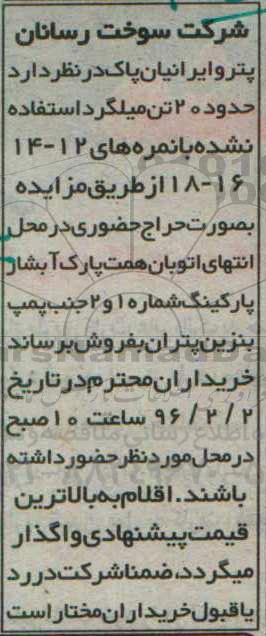 شرکت سوخت رسانان
پترو ایرانیان پاک در نظر دارد
حدود ۲۰ تن میلگرد استفاده
نشده با نمره های ۱۲-۱۴
۱۶-۱۸ از طریق مزایده
بصورت حراج حضوری در محل
انتهای اتوبان همت پارک آبشار
پارکینگ شماره ۱ و ۲ جنب پمپ
بنزین پتران بفروش برساند
خریداران محترم در تاریخ
۹۶ / ۲ / ۲ ساعت ۱۰ صبح
در محل مورد نظر حضور داشته
باشند. اقلام به بالاترین
قیمت پیشنهادی واگذار
میگردد، ضمنا شرکت در رد
یا قبول خریداران مختار است